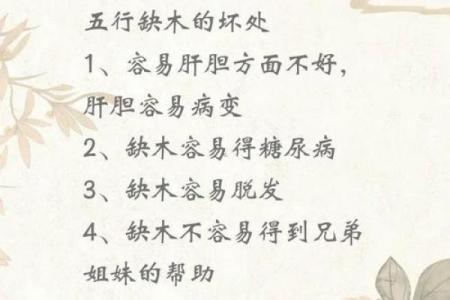 五行缺木的坏处
1、容易肝胆方面不好，
肝胆容易病变
2、缺木容易得糖尿病
3、缺木容易脱发
4、缺木不容易得到兄弟
姐妹的帮助